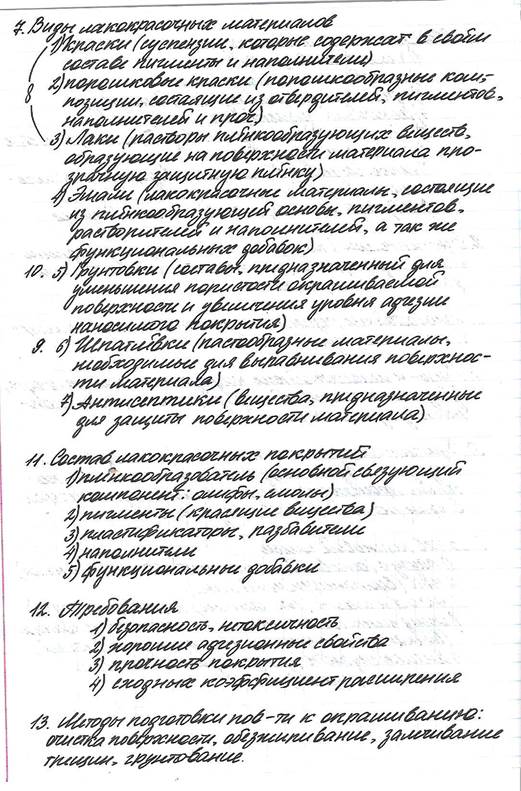 7. Виды лакокрасочных материалов
1) Краски (суспензии, которые содержат в своём
составе пигменты и наполнители)
8 2) порошковые краски (порошкообразные ком-
позиции, состоящие из отвердителей, пигментов,
наполнителей и проч)
3) Лаки (растворы плёнкообразующих веществ,
образующие на поверхности материала про-
зрачную защитную плёнку)
4) Эмали (лакокрасочные материалы, состоящие
из плёнкообразующей основы, пигментов,
растворителей и наполнителей, а так же
функциональных добавок)
10. 5) Грунтовки (составы, предназначенный для
уменьшения пористости окрашиваемой
поверхности и увеличения уровня адгезии
наносимого покрытия)
9. 6) Шпатлёвки (пастообразные материалы,
необходимые для выравнивания поверхнос-
ти материала)
7) Антисептики (вещества, предназначенные
для защиты поверхности материала)
11. Состав лакокрасочных покрытий
1) плёнкообразователь (основной связующий
компонент: олифы, смолы)
2) пигменты (красящие вещества)
3) пластификаторы, разбавители
4) наполнители
5) функциональные добавки
12. Требования
1) безопасность, нетоксичность
2) хорошие адгезионные свойства
3) прочность покрытия
4) сходных коэффициент расширения
13. Методы подготовки пов-ти к окрашиванию:
очистка поверхности, обезжиривание, замачивание
трещин, грунтование.